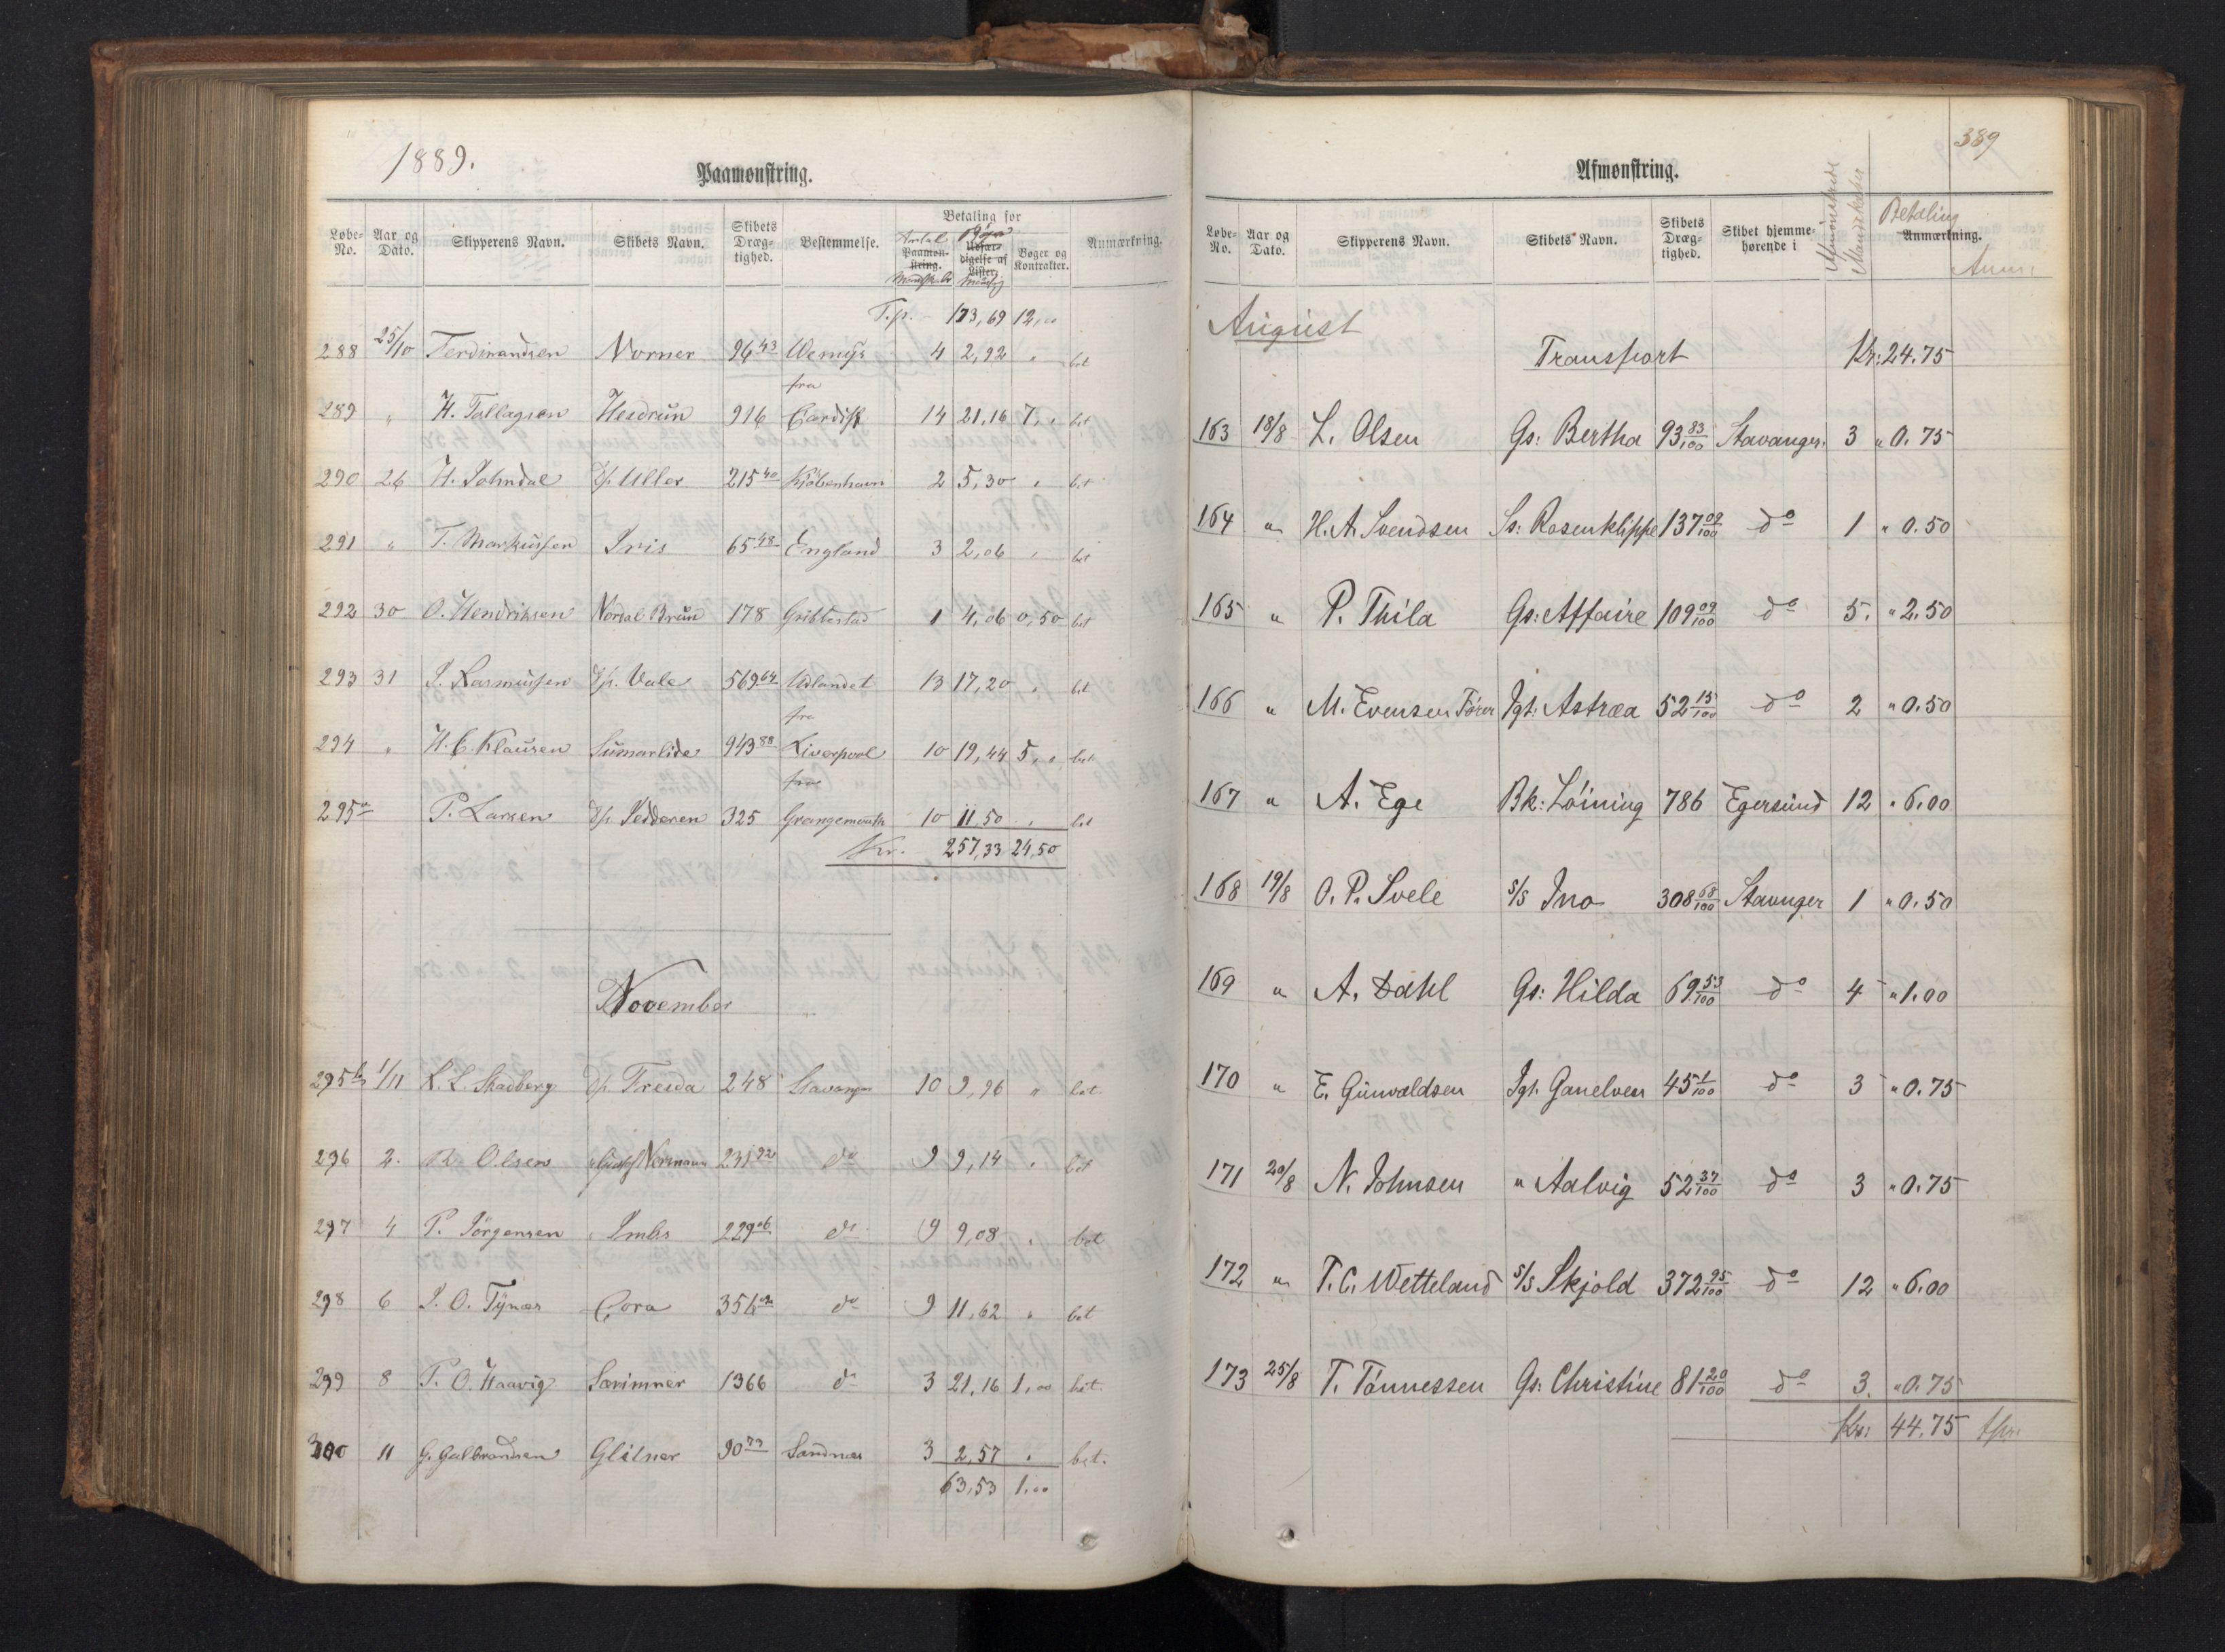 1889.
Paamønstring.
Løbe-No. Aar og Dato. Skipperens Navn. Skibets Navn. Skibets Dræg-tighed. Bestemmelse. Betaling for Antal Paamøn-string. Mandskab Udfær-digelse af Lister. Bøger og Kontrakter. Anmærkning.
T.p. 173,69 12,00
288 25/10 Ferdinandsen Norner 96 43 Wemys 4 2,92 " bet
289 " H. Tallagsen Hesdrun 916 fra Cardiff 14 21,16 7,. bet
290 26 H. Johndal D/s. Uller 215 40 Kjöbenhavn 2 5,30 " bet
291 " T. Markussen Iris 65 48 England 3 2,06 " bet
292 30 O. Hendriksen Nordal Brun 178 Gribbestad 1 4,06 0,50 bet
293 31 J. Rasmussen D/s. Vale 569 64 Udlandet 13 17,20 " bet
294 " H. C. Klausen Sumarlide 943 88 fra Liverpool 10 19,44 5,. bet
295a P. Larsen D/s Vedderen 325 fra Grangemouth 10 11,50 " bet
Kr. 257,33 24,50
November
295b 1/11 L. L. Skadberg D/s Treida 248 Stavanger 10 9,96 " bet
296 2. R. Olsen 231 92 do 9 9,14 " bet
297 4 P. Jörgensen Imbs 229 06 do 9 9,08 . bet
298 6 J. O. Tynæs Cora 356 do 9 11,62 " bet
299 8 P. O. Haavig Særimner 1366 do 3 21,16 1,00 bet.
300 11 G. Gulbrandsen Glitner 90 73 Sandnæs 3 2,57 . bet.
63,53 1,00
389
Afmønstring.
Løbe-No. Aar og Dato. Skipperens Navn. Skibets Navn. Skibets Dræg-tighed. Skibet hjemme-hørende i Afmönstrede Mandskaber Betaling Anmærkning. Anm:
August
Transport Kr: 24.75
163 18/8 L. Olsen Gs: Bertha 93 83/100 Stavanger. 3 " 0.75
164 " H. A. Svendsen Ss: Rosenklippe 137 09/100 do 1 " 0.50
165 " P. Thila Gs: Affaire 109 09/100 do 5. " 2.50
166 " M. Evensen Förer Jgt: Astræa 52 15/100 do 2 " 0.50
167 " A. Ege Bk: Löining 786 Egersund 12 " 6.00
168 19/8 O. P. Svele S/S Ino 308 68/100 Stavanger 1 " 0.50
169 " A. Dahl Gs: Hilda 69 53/100 do 4 " 1.00
170 " E. Gunvaldsen Jgt. Ganelven 45 1/100 do 3 " 0.75
171 20/8 N. Johnsen " Aalvig 52 37/100 do 3 " 0.75
172 " T. C. Wetteland S/S Skjold 372 95/100 do 12 " 6.00
173 25/8 T. Tönnessen Gs: Christine 81 20/100 do 3. " 0.75
Kr: 44.75